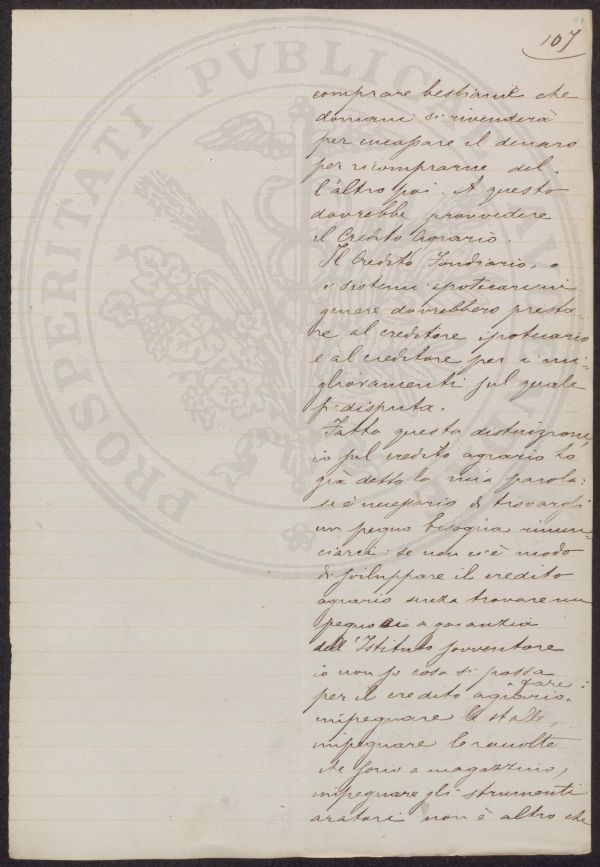 107
PROSPERITATI PVBLICAE
comprare bestiame che
domani si rivenderà
per incassare il denaro
per ricomprarne del-
l'altro poi. A questo
dovrebbe provvedere
il Credito Agrario.
Il Credito Fondiario, o
i sistemi ipotecari in
genere dovrebbero presta-
re al creditore ipotecario
e al creditore per i mi-
glioramenti sul quale
si disputa.
Fatta questa distinzione,
io sul credito agrario ho
già detto la mia parola:
se è necessario di trovargli
un pegno bisogna rinun-
ciarci: se non vi è modo
di sviluppare il credito
agrario senza trovare un
pegno a garanzia
dell'Istituto sovventore
io non so cosa si possa
fare
per il credito agrario:
impegnare le stalle,
impegnare le raccolte
che sono a magazzino,
impegnare gli strumenti
aratori non è altro che